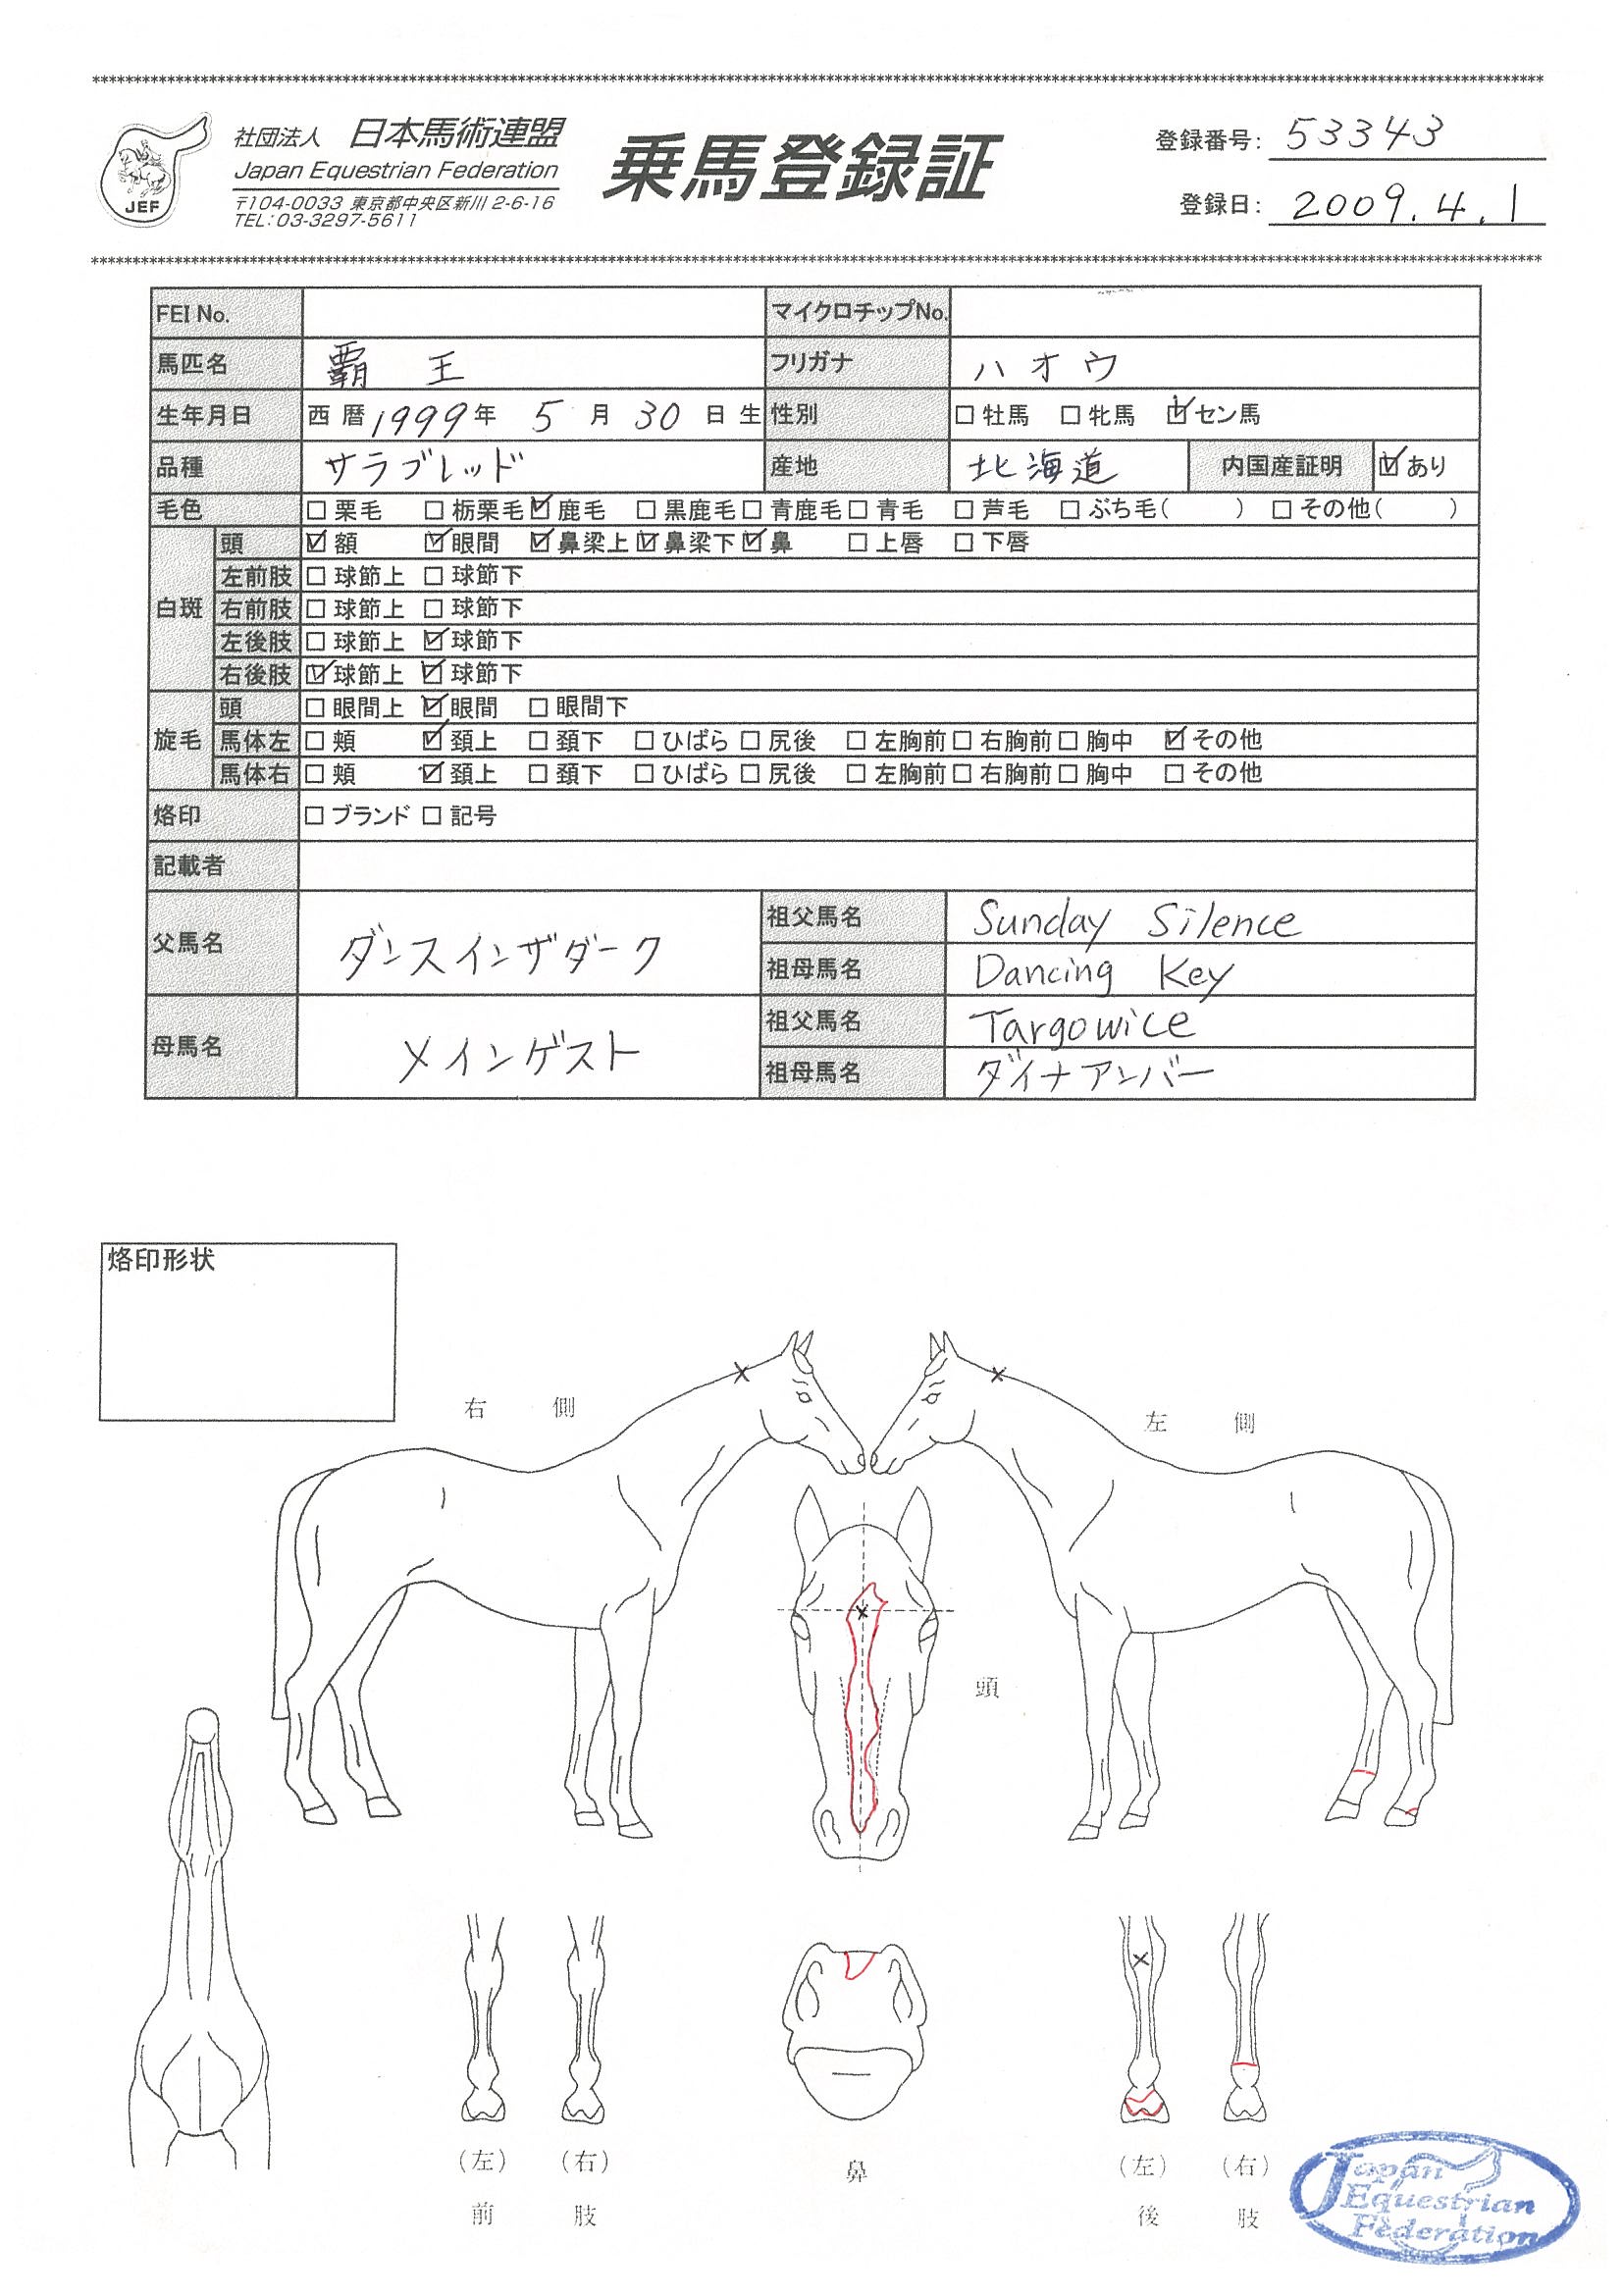 社団法人 日本馬術連盟
Japan Equestrian Federation
〒104-0033 東京都中央区新川 2-6-16
TEL:03-3297-5611
JEF
乗馬登録証
登録番号: 53343
登録日: 2009.4.1
FEI No. マイクロチップNo.
馬匹名 覇王 フリガナ ハオウ
生年月日 西暦1999年 5月 30日生 性別 □牡馬 □牝馬 ☑セン馬
品種 サラブレッド 産地 北海道 内国産証明 ☑あり
毛色 □栗毛 □栃栗毛 ☑鹿毛 □黒鹿毛 □青鹿毛 □青毛 □芦毛 □ぶち毛( ) □その他( )
白斑 頭 ☑額 ☑眼間 ☑鼻梁上 ☑鼻梁下 ☑鼻 □上唇 □下唇
左前肢 □球節上 □球節下
右前肢 □球節上 □球節下
左後肢 □球節上 ☑球節下
右後肢 ☑球節上 ☑球節下
旋毛 頭 □眼間上 ☑眼間 □眼間下
馬体左 □頬 ☑頚上 □頚下 □ひばら □尻後 □左胸前 □右胸前 □胸中 ☑その他
馬体右 □頬 ☑頚上 □頚下 □ひばら □尻後 □左胸前 □右胸前 □胸中 □その他
烙印 □ブランド □記号
記載者
父馬名 ダンスインザダーク 祖父馬名 Sunday Silence
祖母馬名 Dancing Key
母馬名 メインゲスト 祖父馬名 Targowice
祖母馬名 ダイナアンバー
烙印形状
右側
左側
頭
(左) (右)
前肢
鼻
(左) (右)
後肢
Japan
Equestrian
Federation